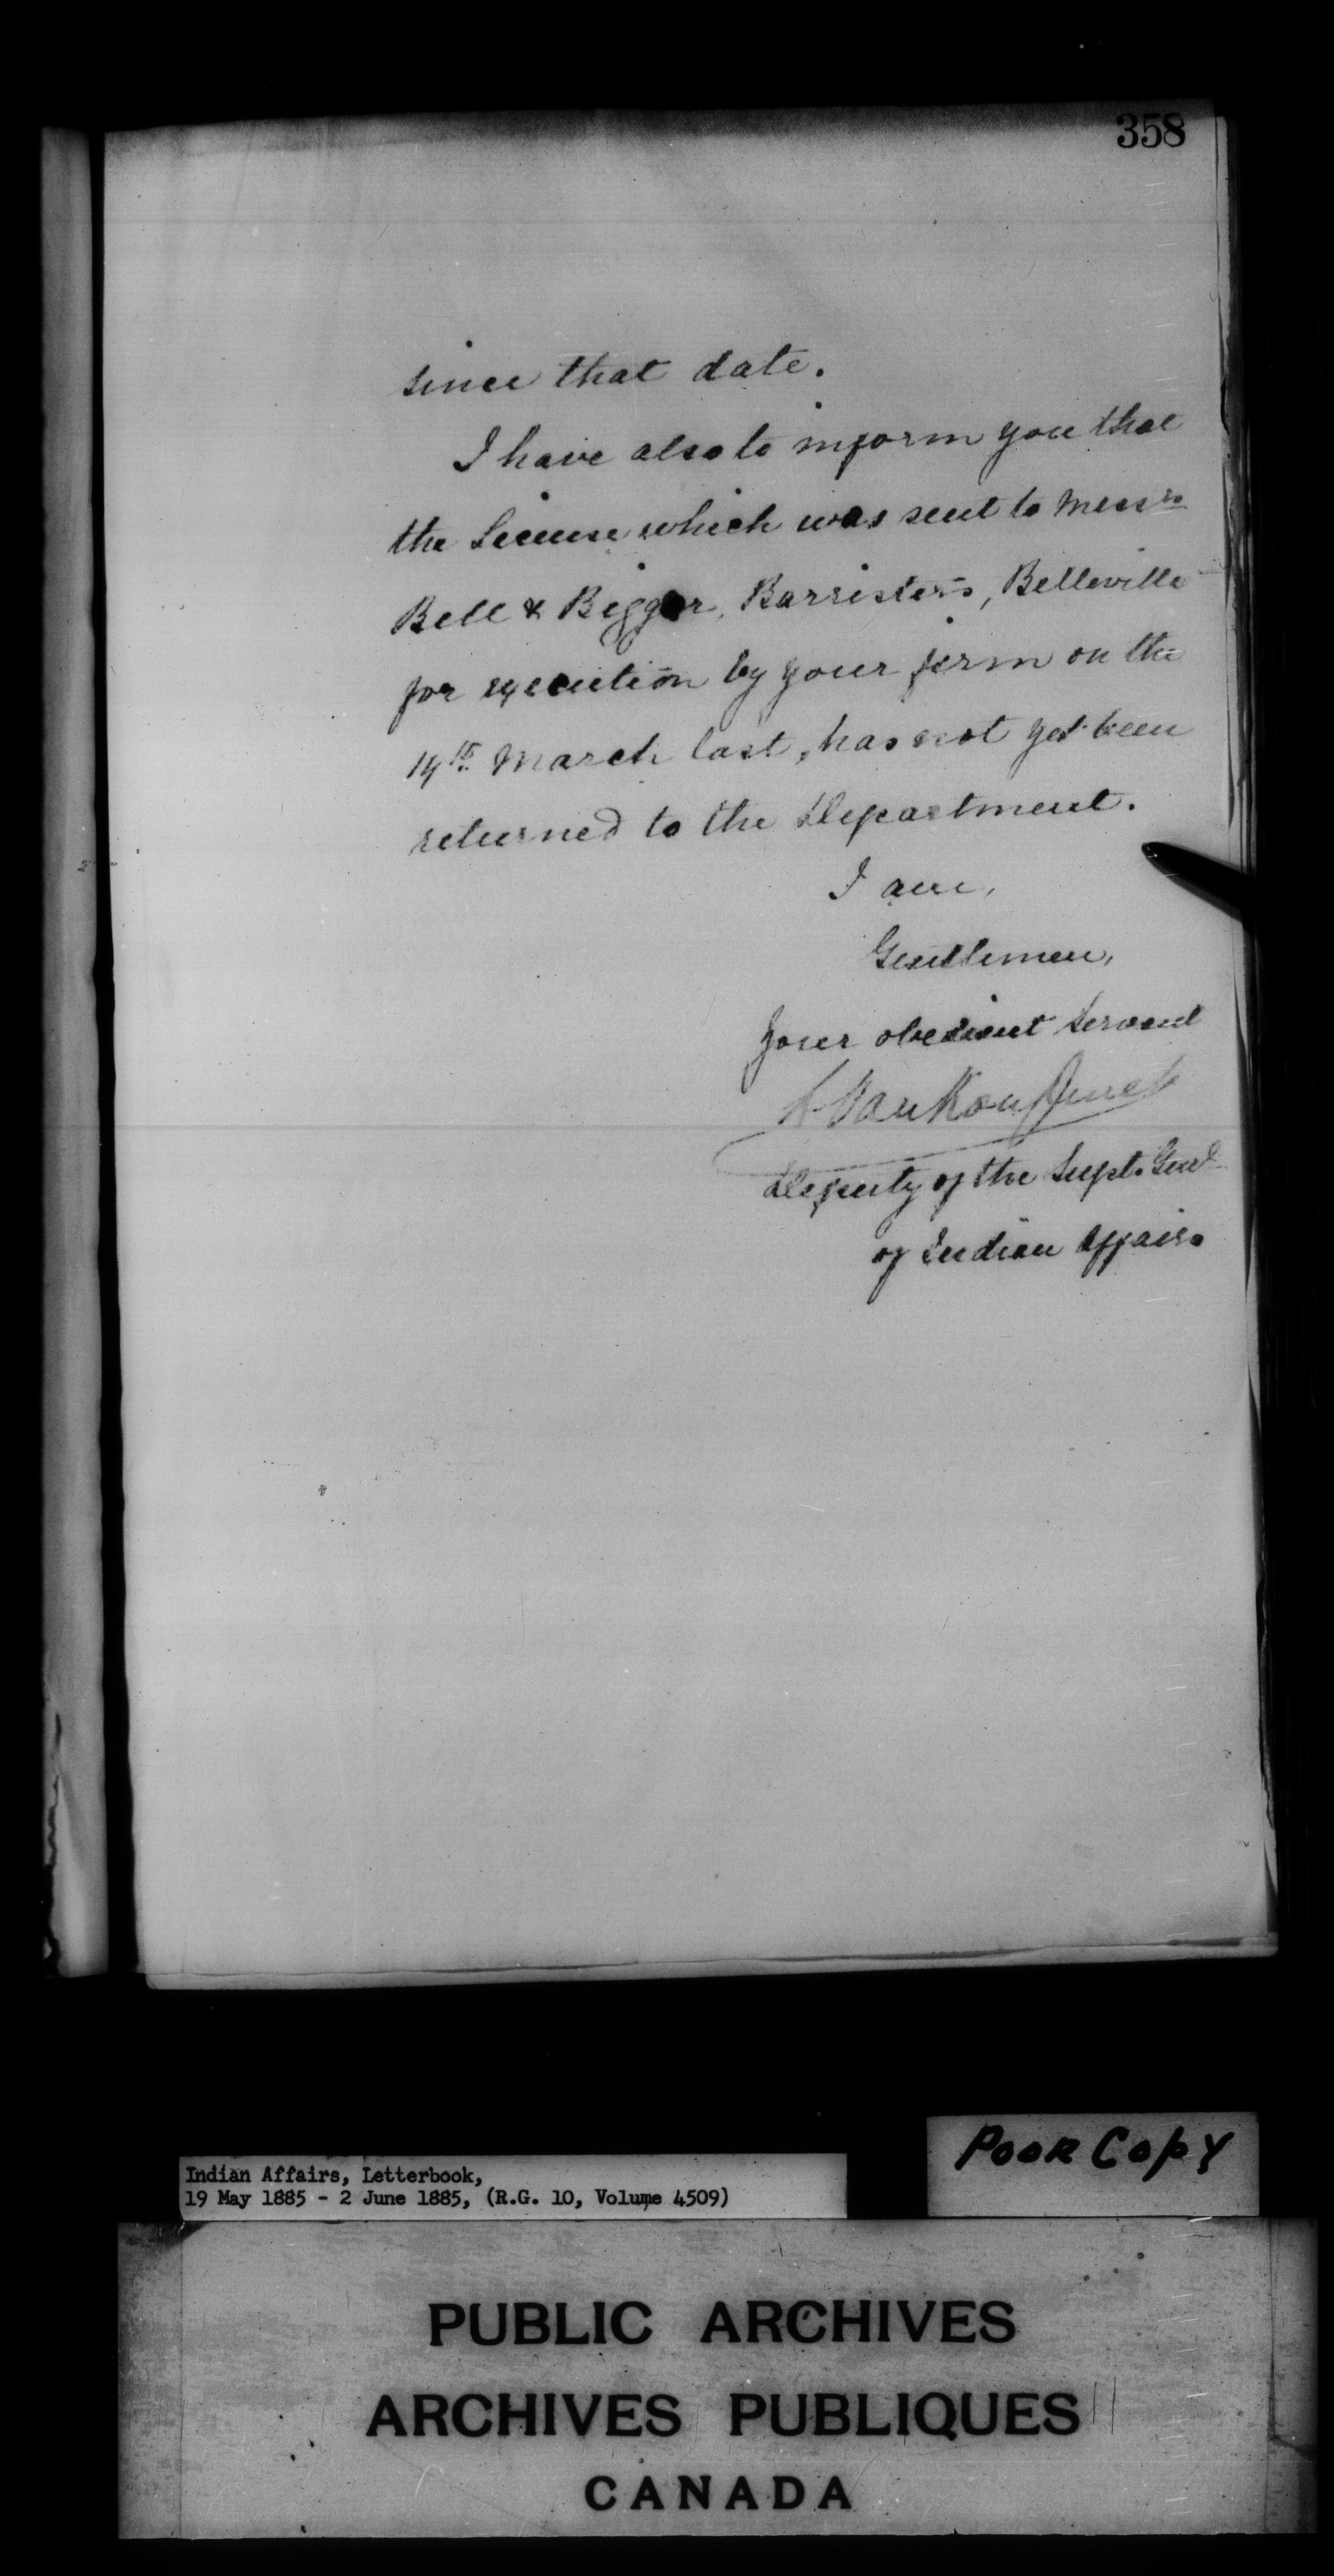 358
since that date.
I have also to inform you that
the License which was sent to Messrs
Bell & Biggar, Barristers, Belleville
for execution by your firm on the
14th March last, has not yet been
returned to the Department.
I am,
Gentlemen,
Your obedient Servant
L. VanKoughnet
Deputy of the Supt. Genl
of Indian Affairs
Indian Affairs, Letterbook,
19 May 1885 - 2 June 1885, (R.G. 10, Volume 4509)
POOR COPY
PUBLIC ARCHIVES
ARCHIVES PUBLIQUES
CANADA